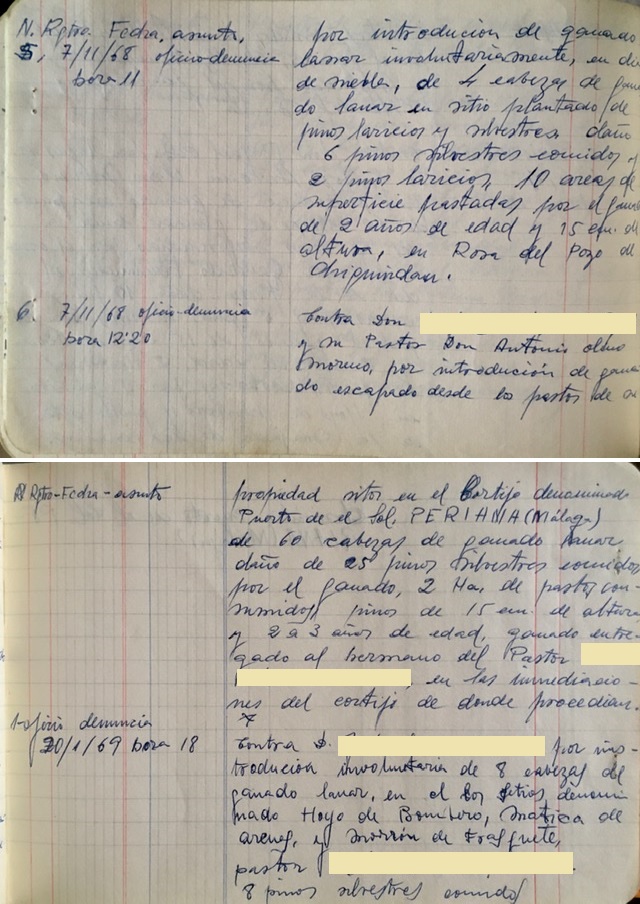 N. Rgtro. Fecha, asunto,
5, 7/11/68 oficio-denuncia
hora 11
por introducion de ganado
lanar involuntariamente, en dia
de niebla, de 4 cabezas de gana
do lanar en sitio plantado de
pinos laricios y silvestres daño
6 pinos silvestres comidos y
2 pinos laricios, 10 areas de
superficie pastadas por el gana
de 2 años de edad y 15 cm. de
altura, en Rosa del Pozo de
6. 7/11/68 oficio-denuncia
hora 12'20
Contra Don
y su Pastor Don Antonio
Moreno, por introducción de gana
do escapado desde los pastos de su
Rgtro-Fecha-asunto
propiedad sitos en el Cortijo denominado
Puerto de el Sol, PERIANA (Málaga)
de 60 cabezas de ganado lanar
daño de 25 pinos silvestres comidos
por el ganado, 2 Ha. de pastos con-
sumidos, pinos de 15 cm. de altura
y 2 a 3 años de edad, ganado entre-
gado al hermano del Pastor
, en las inmediacio-
nes del cortijo de donde procedian.
1-oficio denuncia
20/1/69 hora 18
Contra D. por ins-
troducion involuntaria de 8 cabezas de
ganado lanar, en el los sitios denomi
nado Hoyo de Bombero, Matica de
arenas, y Morrón de Frasquete,
pastor
8 pinos silvestres comidos